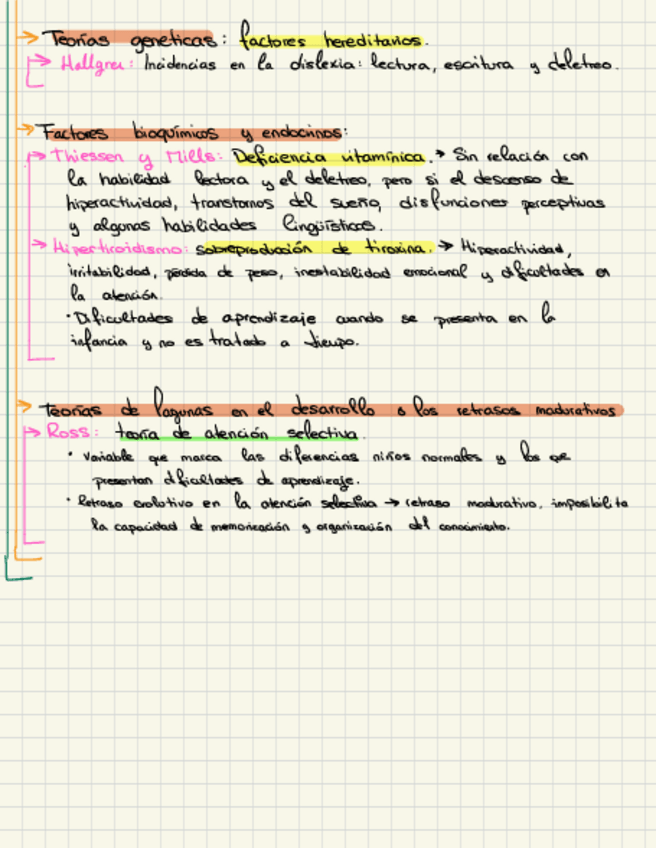 → Teorías geneticas: factores hereditarios.
→ Hallgren: Incidencias en la dislexia: lectura, escritura y deletreo.
→ Factores bioquímicos y endocrinos:
→ Thiessen y Mills: Deficiencia vitamínica. → Sin relación con
la habilidad lectora y el deletreo, pero si el descenso de
hiperactividad, transtornos del sueño, disfunciones perceptivas
y algunas habilidades lingüísticas.
→ Hipertiroidismo: sobreproducción de tiroxina. → Hiperactividad,
irritabilidad, pérdida de peso, inestabilidad emocional y dificultades en
la atención.
· Dificultades de aprendizaje cuando se presenta en la
infancia y no es tratado a tiempo.
→ Teorías de lagunas en el desarrollo o los retrasos madurativos
→ Ross: teoría de atención selectiva.
· Variable que marca las diferencias niños normales y los que
presentan dficultades de aprendizaje.
· Retraso evolutivo en la atención selectiva → retraso madurativo, imposibilita
la capacidad de memorización y organización del conocimiento.